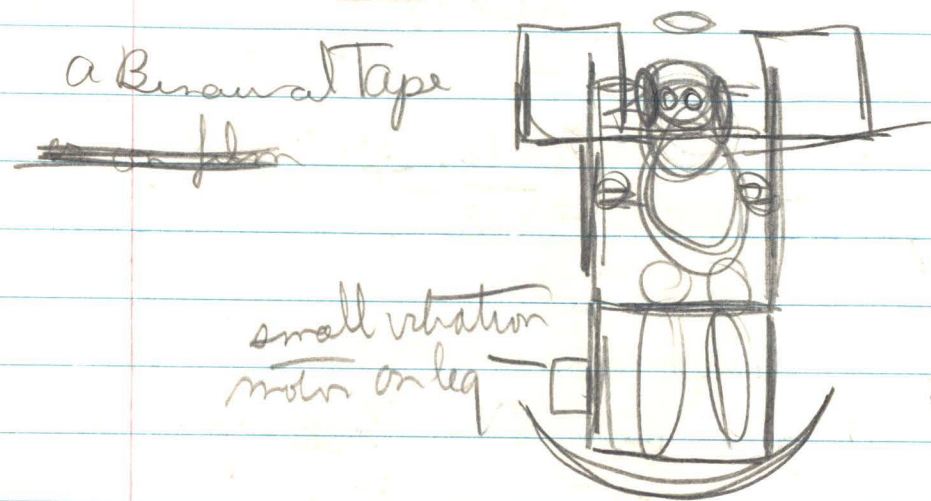 a Binaural Tape
small vibration
motor on leg